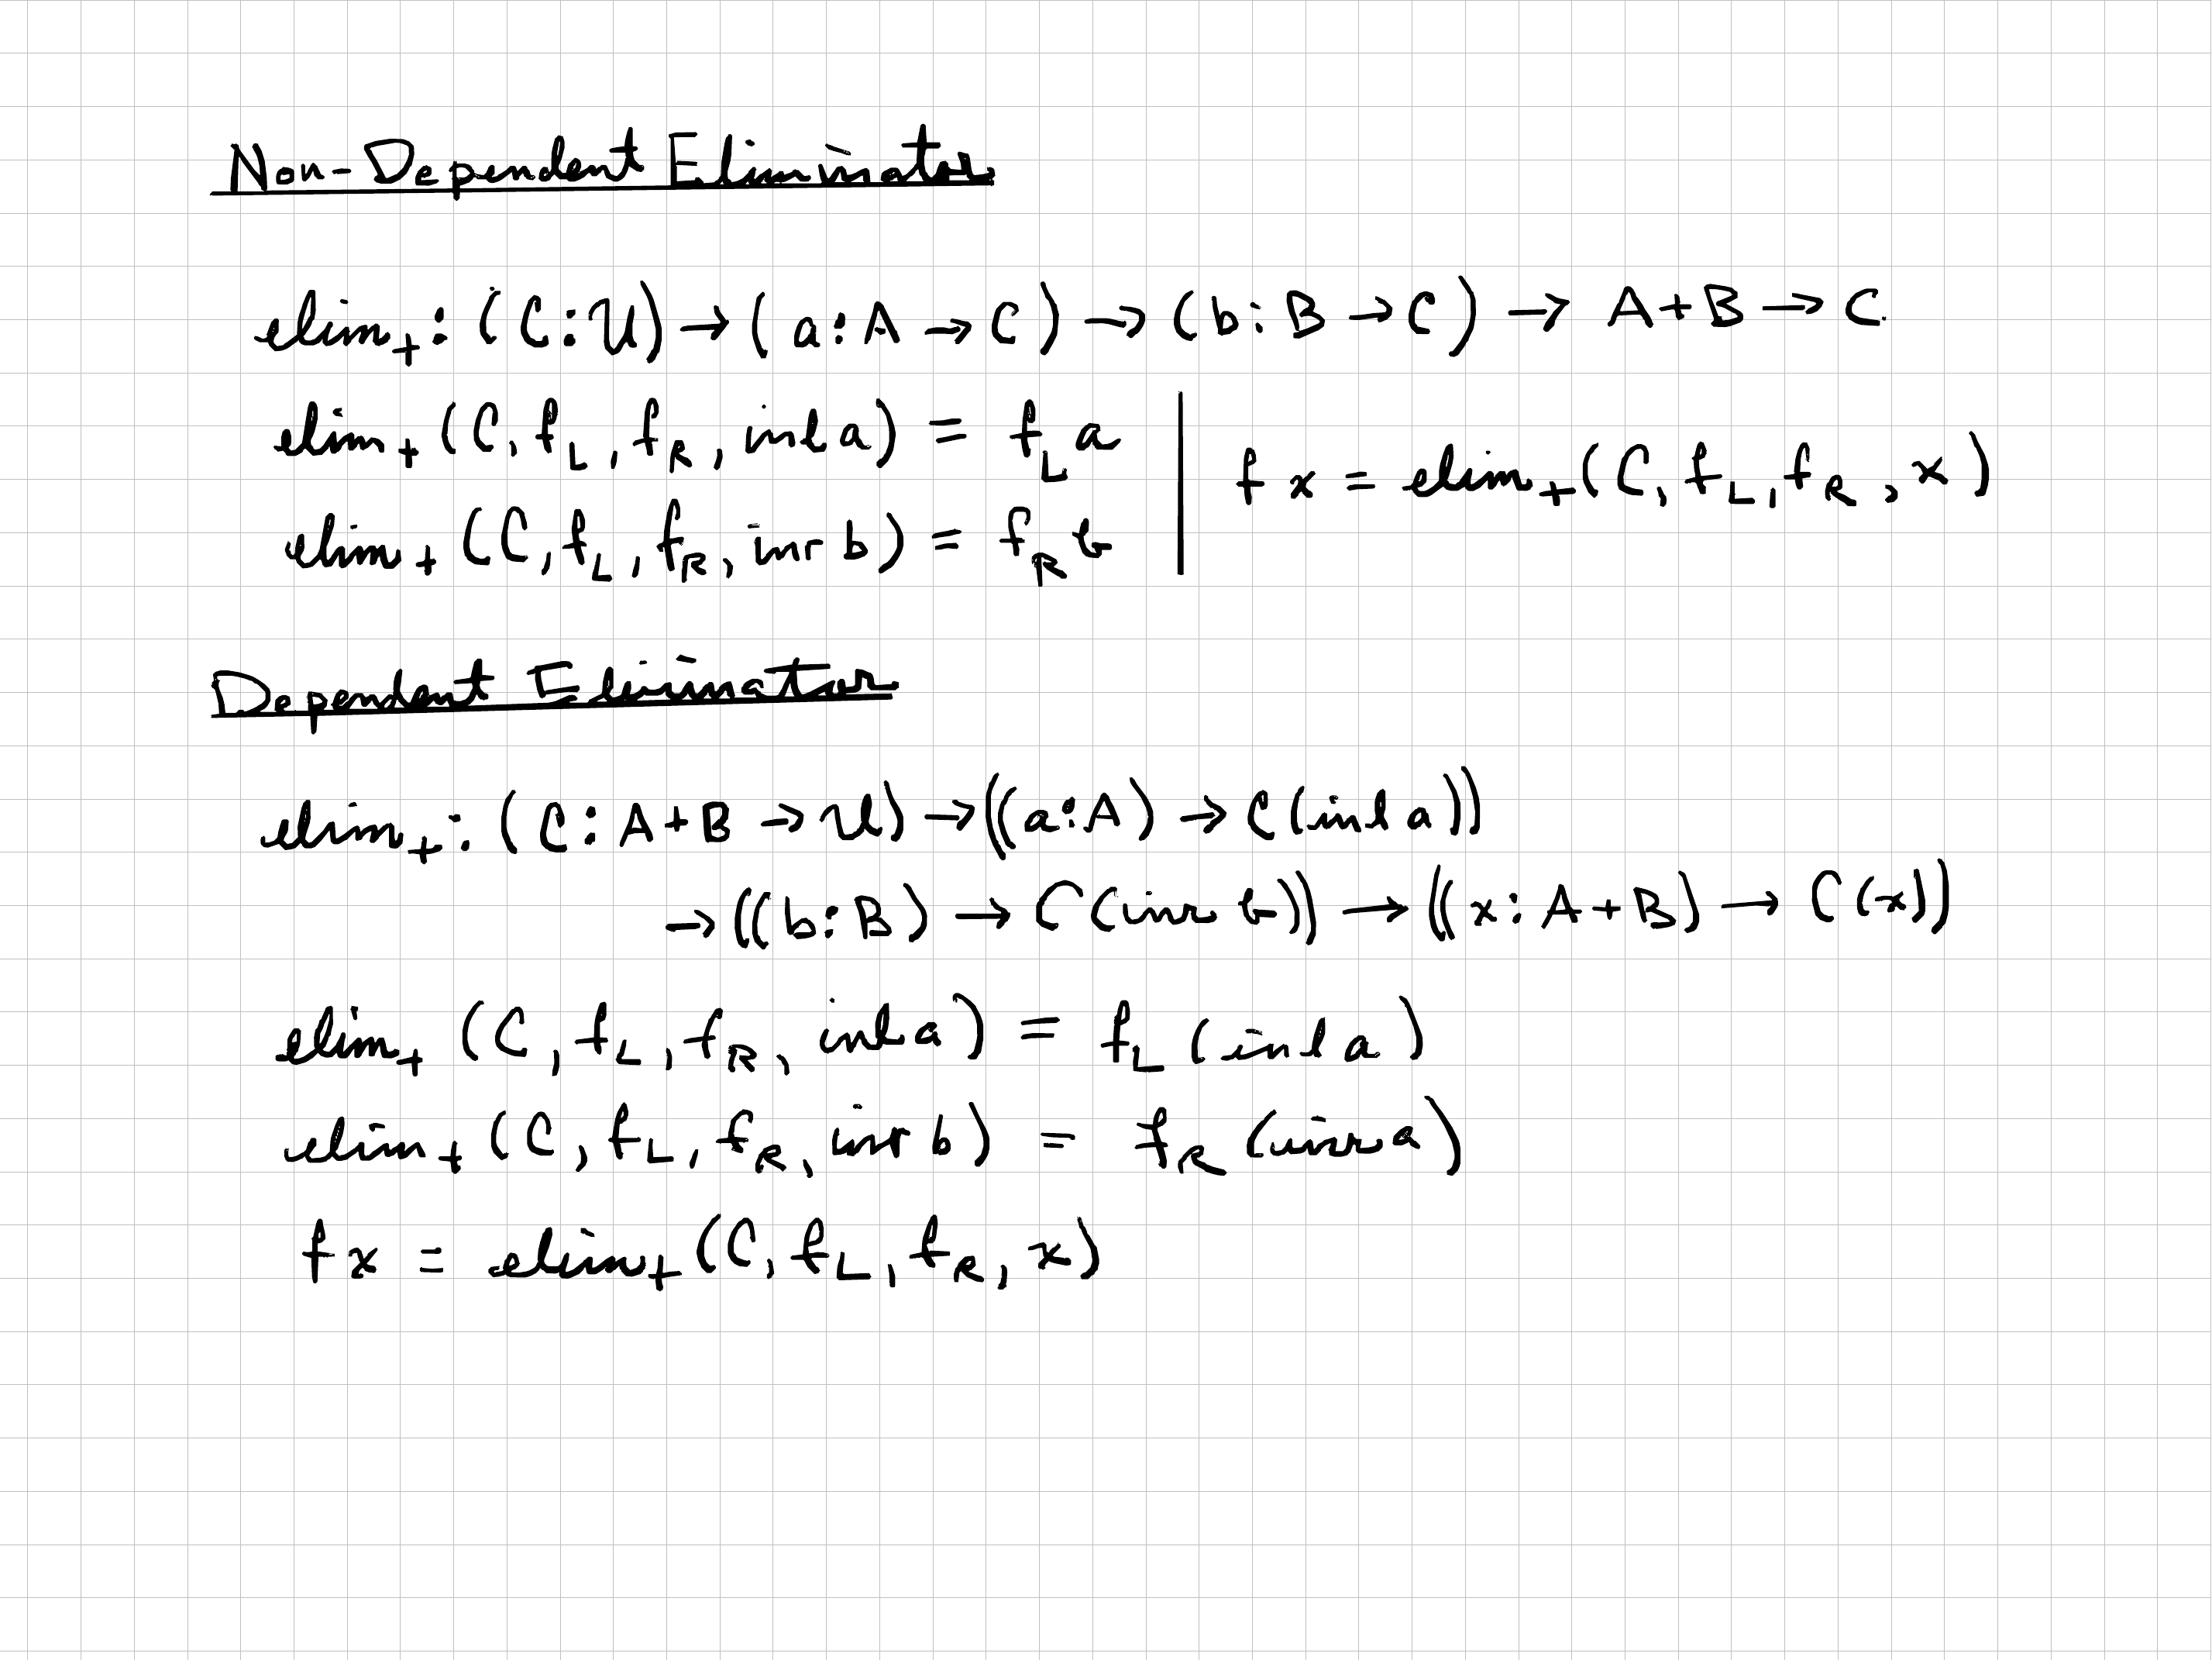 Non-Dependent Eliminator
elim₊ : (C : 𝒰) → (a : A → C) → (b : B → C) → A + B → C
elim₊ (C, f_L, f_R, inl a) = f_L a
elim₊ (C, f_L, f_R, inr b) = f_R b
f x = elim₊ (C, f_L, f_R, x)
Dependent Eliminator
elim₊ : (C : A + B → 𝒰) → ((a : A) → C (inl a))
→ ((b : B) → C (inr b)) → ((x : A + B) → C (x))
elim₊ (C, f_L, f_R, inl a) = f_L (inl a)
elim₊ (C, f_L, f_R, inr b) = f_R (inr a)
f x = elim₊ (C, f_L, f_R, x)